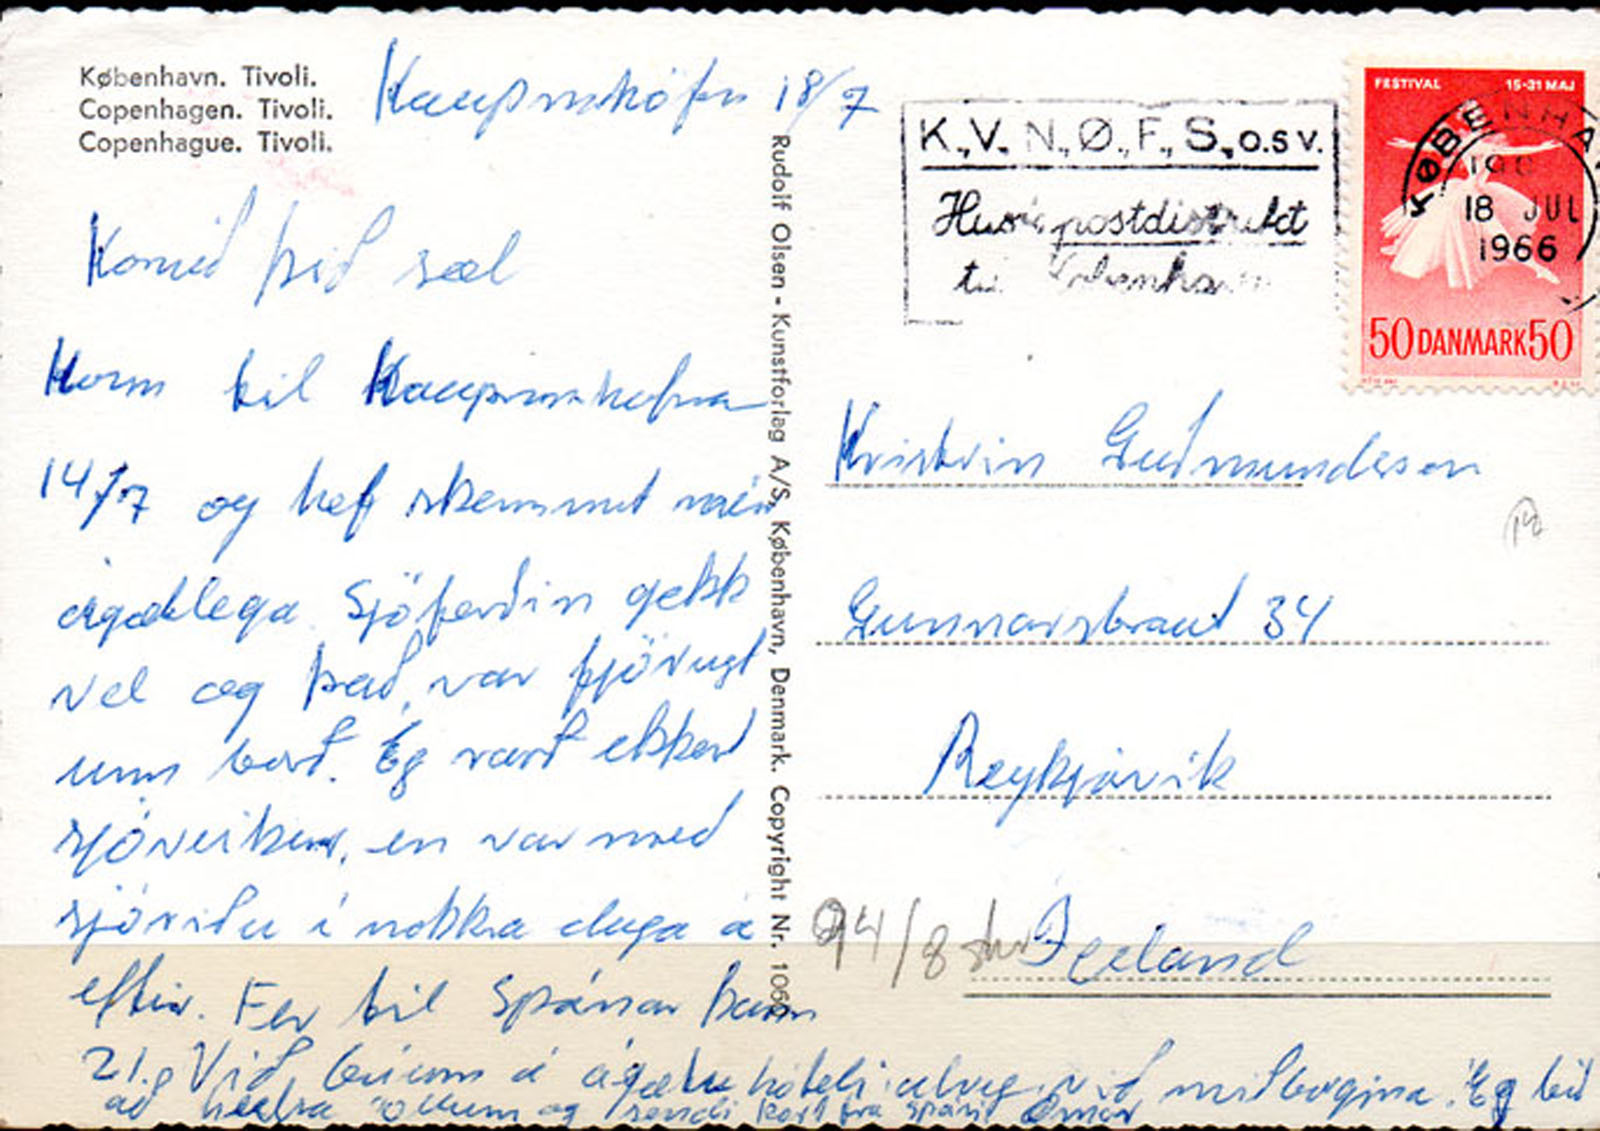 København. Tivoli.
Copenhagen. Tivoli.
Copenhague. Tivoli.
Kaupmhöfn 18/7
Komið þið sæl
Kom til Kaupmhafnar
14/7 og hef skemmt mér
ágætlega. Sjöferðin gekk
vel og það var fjörugt
um borð. Ég varð ekkert
sjóveikur, en var með
sjóriðu í nokkra daga á
eftir. Fer til Spánar þann
21. Við búum á ágætu hóteli alveg við miðborgina. Ég bið
að heilsa öllum og sendi kort frá Spáni Ómar
Rudolf Olsen - Kunstforlag A/S, København, Denmark. Copyright Nr. 106
K.,V., N., Ø., F., S., o.s v.
Husk postdistrikt
til København
FESTIVAL 15-31 MAJ
KØBENHA
18 JUL
1966
50 DANMARK 50
Kristvin Guðmundsson
Gunnarsbraut 34
Reykjavík
94/8
Iceland